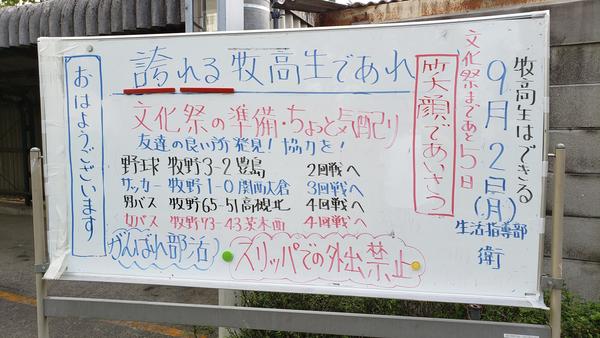 牧高生はできる
9月2日(月)
生活指導部
衛
文化祭まであと5日
笑顔であいさつ
誇れる牧高生であれ
文化祭の準備・ちょっと気配り
友達の良い所発見!協力を!
野球 牧野3-2豊島 2回戦へ
サッカー 牧野1-0関西大倉 3回戦へ
男バス 牧野65-51高槻北 4回戦へ
女バス 牧野73-43茨木西 4回戦へ
がんばれ部活!
スリッパでの外出禁止
おはようございます